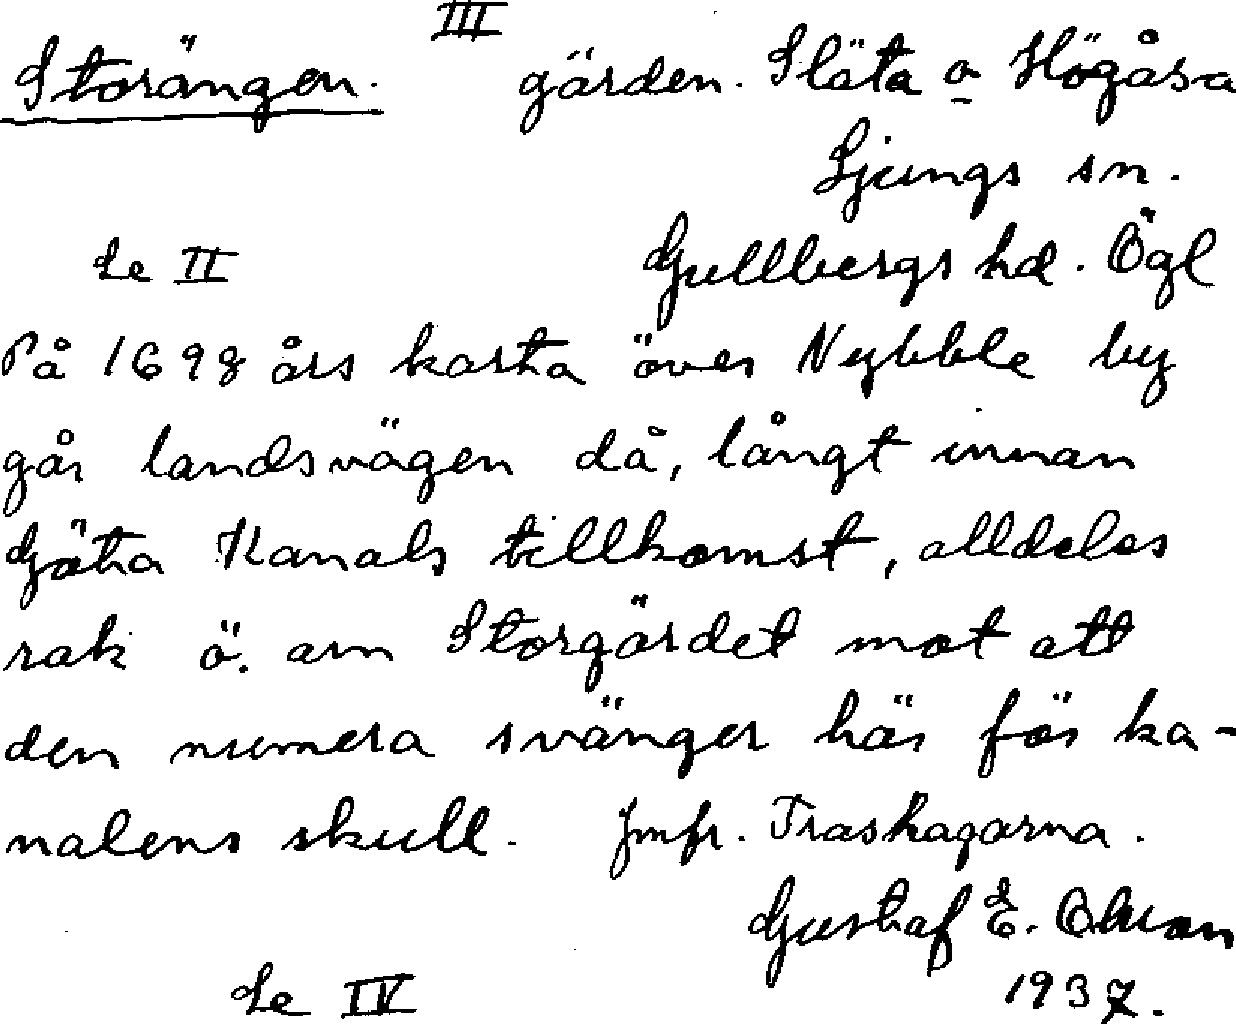 III
Storängen. gärden. Släta o Högåsa
Ljungs sn.
Se II Gullbergs hd. Ögl
På 1698 års karta över Nybble by
går landsvägen då, långt innan
Göta Kanals tillkomst, alldeles
rak ö. om Storgärdet mot att
den numera svänger här för ka-
nalens skull. Jmfr. Trashagarna.
Gustaf E. Olson
Se IV 1937.